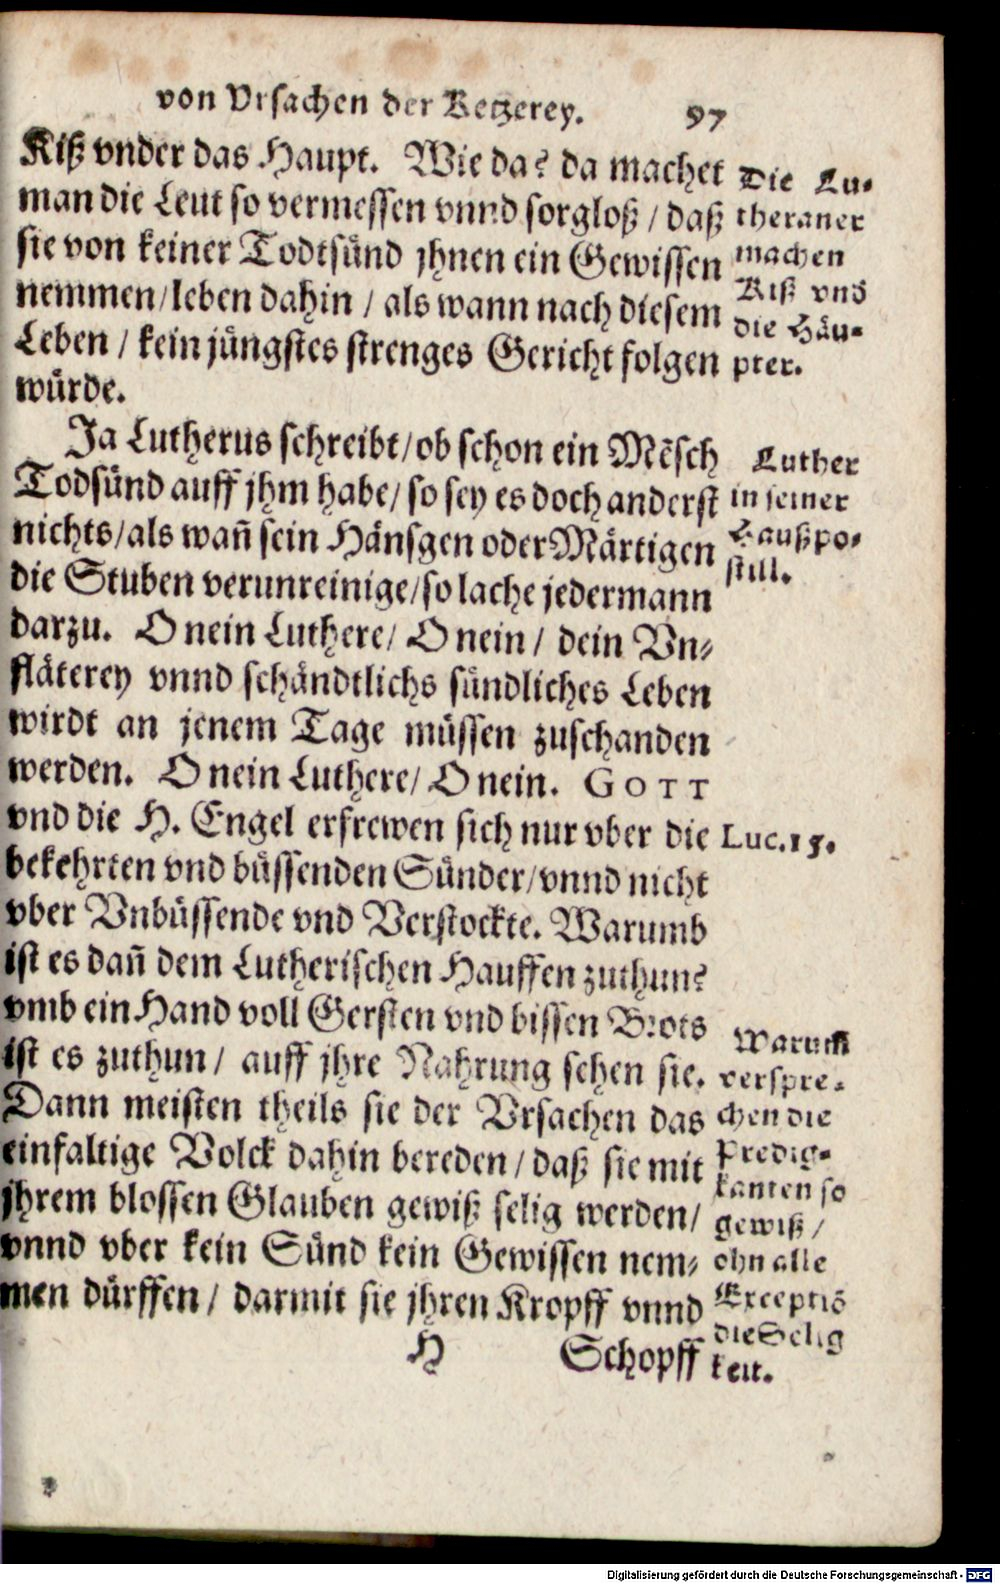 von Vrsachen der Ketzerey. 97
Kiß vnder das Haupt. Wie da? da machet
man die Leut so vermessen vnnd sorgloß / daß
sie von keiner Todtsünd jhnen ein Gewissen
nemmen / leben dahin / als wann nach diesem
Leben / kein jüngstes strenges Gericht folgen
würde.
Die Lu-
theraner
machen
Kiß vnd
die Häu-
pter.
Ja Lutherus schreibt / ob schon ein Mẽsch
Todsünd auff jhm habe / so sey es doch anderst
nichts / als wañ sein Hänsgen oder Märtigen
die Stuben verunreinige / so lache jedermann
darzu. O nein Luthere / O nein / dein Vn-
fläterey vnnd schändtlichs sündliches Leben
wirdt an jenem Tage müssen zuschanden
werden. O nein Luthere / O nein. GOTT
vnd die H. Engel erfrewen sich nur vber die
bekehrten vnd büssenden Sünder / vnnd nicht
vber Vnbüssende vnd Verstockte. Warumb
ist es dañ dem Lutherischen Hauffen zuthun?
vmb ein Hand voll Gersten vnd bissen Brots
ist es zuthun / auff jhre Nahrung sehen sie.
Dann meisten theils sie der Vrsachen das
einfaltige Volck dahin bereden / daß sie mit
jhrem blossen Glauben gewiß selig werden /
vnnd vber kein Sünd kein Gewissen nem-
men dürffen / darmit sie jhren Kropff vnnd
Luther
in seiner
Haußpo-
still.
Luc. 15.
Warum̃
verspre-
chen die
Predig-
kanten so
gewiß /
ohn alle
Exceptiõ
die Selig
keit.
H Schopff
Digitalisierung gefördert durch die Deutsche Forschungsgemeinschaft - DFG